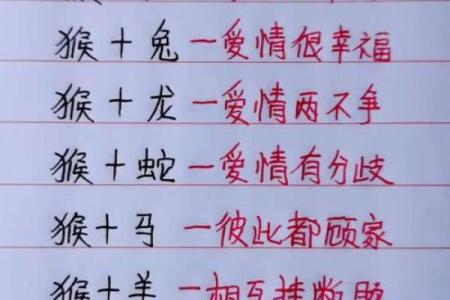 猴+兔—爱情很幸福
猴+龙—爱情两不争
猴+蛇—爱情有分歧
猴+马—彼此都顾家
猴+羊—相互